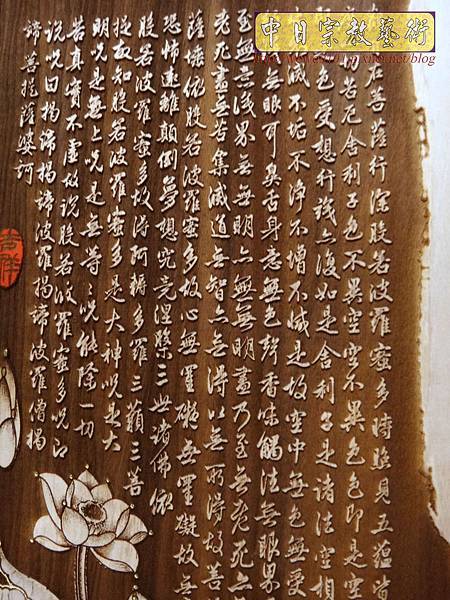 中日宗教藝術
菩薩行深般若波羅蜜多時照見五蘊皆
苦厄舍利子色不異空空不異色色即是空
色受想行識亦復如是舍利子是諸法空相
滅不垢不淨不增不減是故空中無色無受
無眼耳鼻舌身意無色聲香味觸法無眼界
至無意識界無無明亦無無明盡乃至無老死亦
老死盡無苦集滅道無智亦無得以無所得故菩
薩埵依般若波羅蜜多故心無罣礙無罣礙故無
恐怖遠離顛倒夢想究竟涅槃三世諸佛依
般若波羅蜜多故得阿耨多羅三藐三菩
提故知般若波羅蜜多是大神咒是大
明咒是無上咒是無等等咒能除一切
苦真實不虛故說般若波羅蜜多咒即
說咒曰揭諦揭諦波羅揭諦波羅僧揭
諦菩提薩婆訶
吉祥